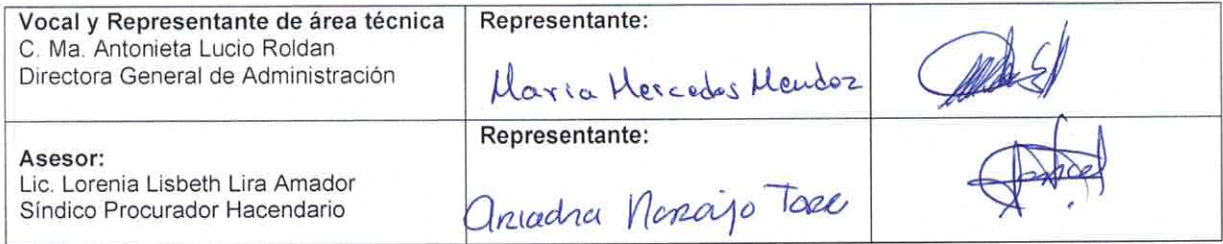 Vocal y Representante de área técnica
C. Ma. Antonieta Lucio Roldan
Directora General de Administración
Representante:
Maria Mercedes Mendoz
Asesor:
Lic. Lorenia Lisbeth Lira Amador
Síndico Procurador Hacendario
Representante:
Ariadna Naranjo Torre